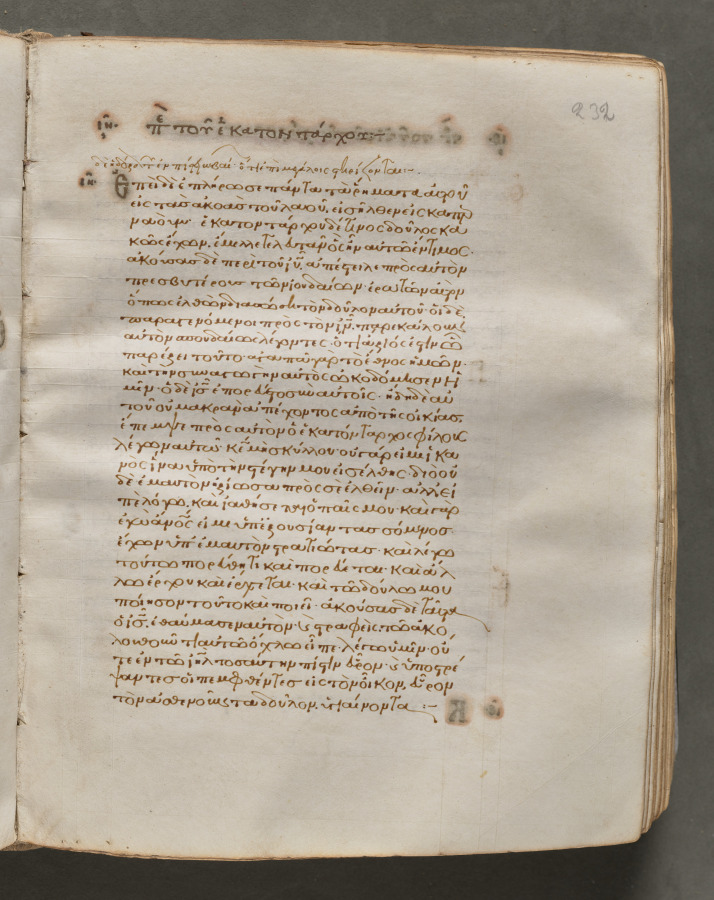 ιη. πε τοῦ ἑκατοντάρχου
ὅτι ἐπὶ μεγάλοις
Ἐπειδὲ ἐπλήρωσε πάντα τὰ ῥήματα αὐτοῦ
εἰς τὰς ἀκοὰς τοῦ λαοῦ, εἰσῆλθεν εἰς καπερ
ναοὺμ· ἑκατοντάρχου δέ τινος δοῦλος κα
κῶς ἔχων, ἔμελλε τελευτᾶν ὃς ἦν αὐτῶ ἔντιμος·
ἀκούσας δὲ περὶ τοῦ ιυ, ἀπέστειλε πρὸς αὐτὸν
πρεσβυτέρους τῶν ἰουδαίων· ἐρωτῶν αὐτὸν
ὅπως ἐλθὼν διασώση τὸν δοῦλον αὐτοῦ· οἱ δὲ
παραγενόμενοι πρὸς τὸν ιν, παρεκάλουν
αὐτὸν σπουδαίως λέγοντες· ὅτι ἄξιός ἐστιν ὧ
παρέξει τοῦτο· ἀγαπᾶ γὰρ τὸ ἔθνος ἡμῶν·
καὶ τὴν συναγωγὴν αὐτὸς ὠκοδόμησεν ἡ
μῖν· ὁ δὲ ις ἐπορεύετο σὺν αὐτοῖς· ἤδη δὲ αὐ
τοῦ οὐ μακρὰν ἀπέχοντος ἀπὸ τῆς οἰκίας,
ἔπεμψε πρὸς αὐτὸν ὁ ἑκατόνταρχος φίλους
λέγων αὐτῶ· κε μὴ σκύλλου· οὐ γάρ εἰμι ἱκα
νὸς ἵνα ὑπὸ τὴν στέγην μου εἰσέλθης· διὸ οὐ
δὲ ἐμαυτὸν ἠξίωσα πρὸς σὲ ἐλθεῖν· ἀλλ' εἰ
πὲ λόγω, καὶ ἰαθήσεται ὁ παῖς μου· καὶ γὰρ
ἐγὼ ἄνος εἰμι ὑπὸ ἐξουσίαν τασσόμενος·
ἔχων ὑπ' ἐμαυτὸν στρατιώτας· καὶ λέγω
τούτω πορεύθητι καὶ πορεύεται· καὶ ἄλ
λω ἔρχου καὶ ἔρχεται· καὶ τῶ δούλω μου
ποίησον τοῦτο καὶ ποιεῖ· ἀκούσας δὲ ταῦτα
ὁ ις, ἐθαύμασεν αὐτὸν· καὶ στραφεὶς τῶ ἀκο
λουθοῦντι αὐτῶ ὄχλω εἶπε· λέγω ὑμῖν· οὔ
τε ἐν τῶ ιηλ τοσαύτην πίστιν εὗρον· καὶ ὑποστρέ
ψαντες οἱ πεμφθέντες εἰς τὸν οἶκον, εὗρον
τὸν ἀσθενοῦντα δοῦλον, ὑγιαίνοντα :~
232